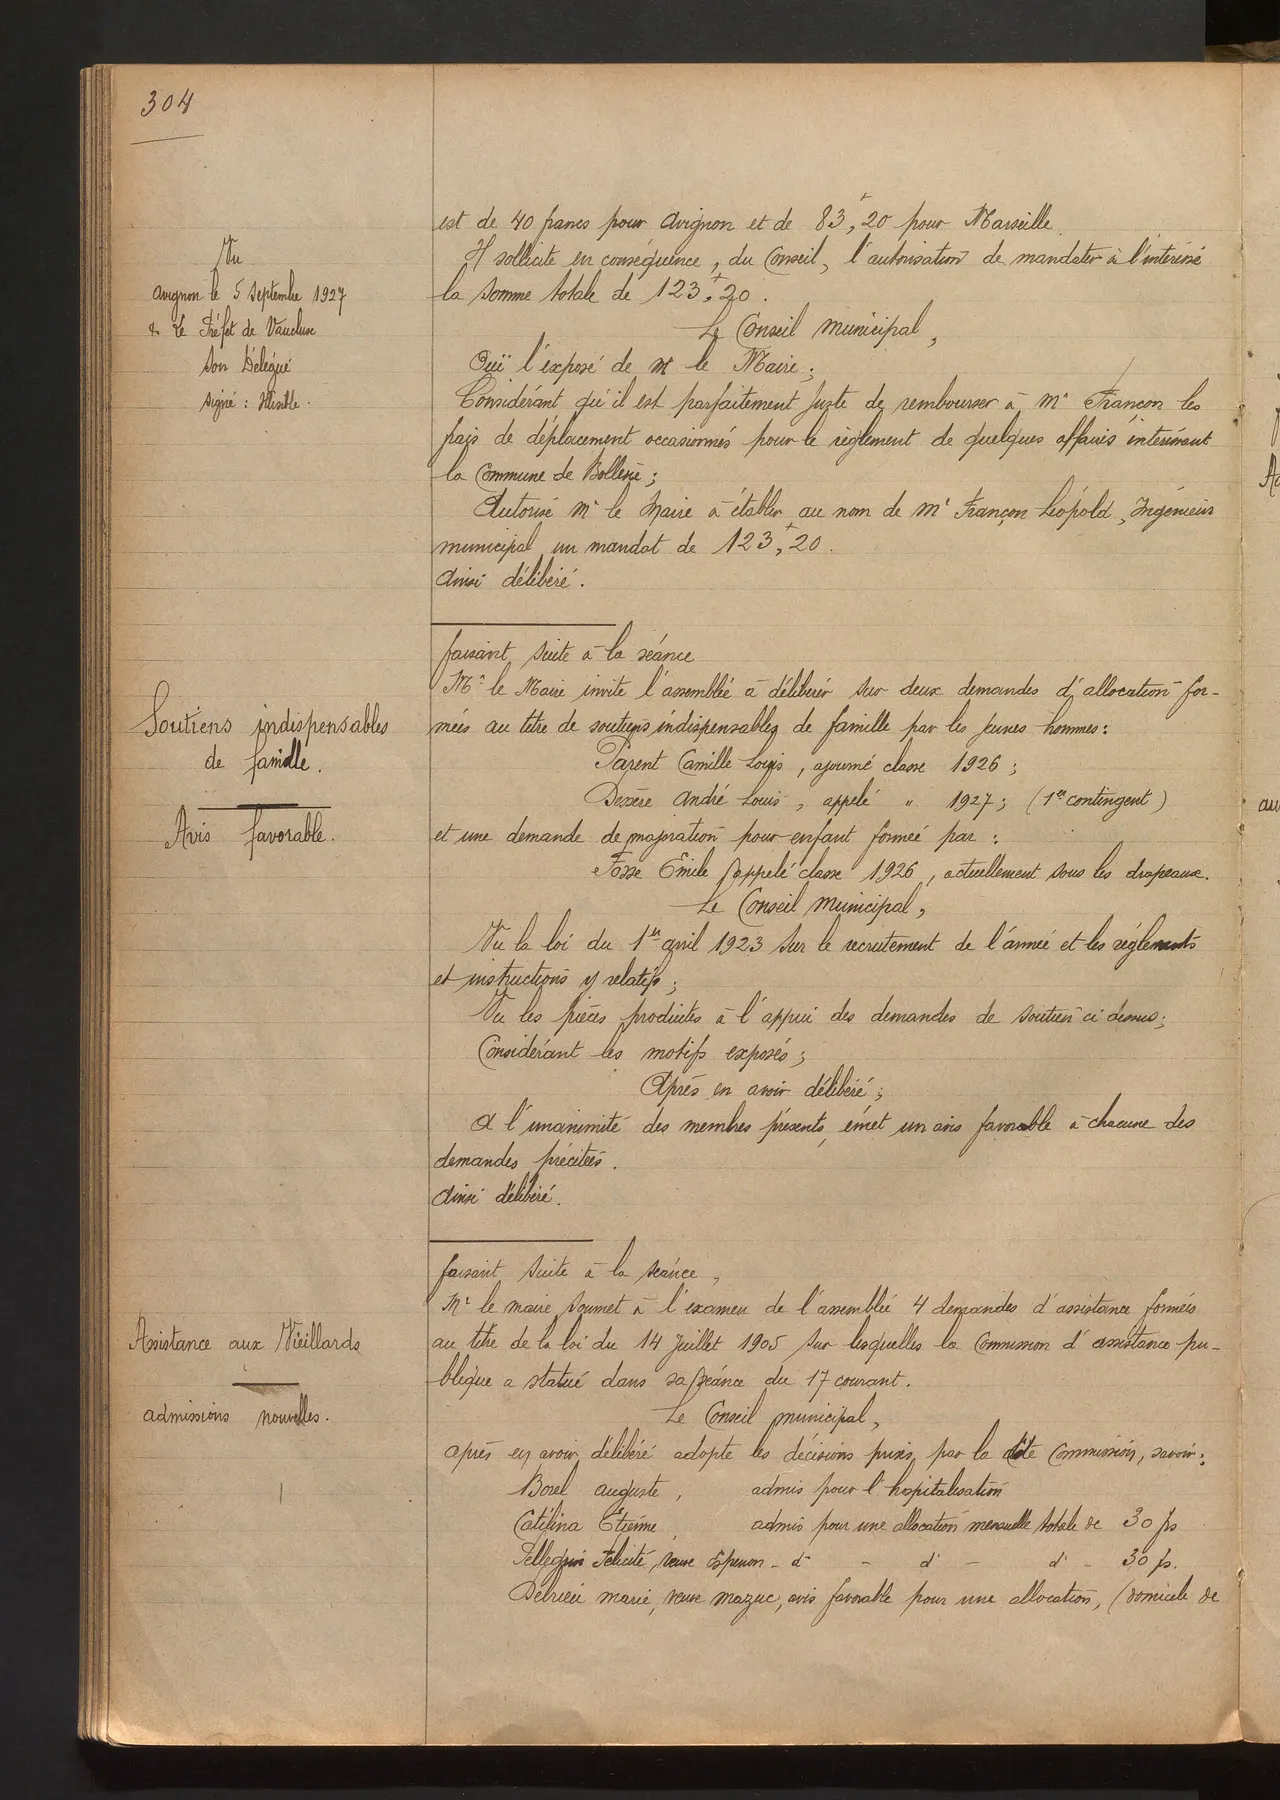 304
Vu
Avignon le 5 Septembre 1927
Le Préfet de Vaucluse
Son Délégué
signé : Illisible.
est de 40 francs pour Avignon et de 83f,20 pour Marseille.
Il sollicite en conséquence, du Conseil, l'autorisation de mandater à l'intéressé
la somme totale de 123f,20.
Le Conseil Municipal,
Ouï l'exposé de Mr le Maire;
Considérant qu'il est parfaitement juste de rembourser à Mr Françon les
frais de déplacement occasionnés pour le règlement de quelques affaires intéressant
la Commune de Bollène;
Autorise Mr le Maire à établir au nom de Mr Françon Léopold, Ingénieur
municipal un mandat de 123f,20.
Ainsi délibéré.
Soutiens indispensables
de famille.
Avis favorable.
faisant suite à la séance
Mr le Maire invite l'assemblée à délibérer sur deux demandes d'allocation for-
mées au titre de soutiens indispensables de famille par les jeunes hommes:
Parent Camille Louis, ajourné classe 1926;
André Louis, appelé " 1927; (1er contingent)
et une demande de majoration pour enfant formée par:
Fosse Emile appelé classe 1926, actuellement sous les drapeaux.
Le Conseil Municipal,
Vu la loi du 1er avril 1923 sur le recrutement de l'armée et les règlements
et instructions y relatifs;
Vu les pièces produites à l'appui des demandes de soutien ci dessus;
Considérant les motifs exposés;
Après en avoir délibéré;
A l'unanimité des membres présents, émet un avis favorable à chacune des
demandes précitées.
Ainsi délibéré.
Assistance aux Vieillards
admissions nouvelles.
faisant suite à la séance,
Mr le maire soumet à l'examen de l'assemblée 4 demandes d'assistance formées
au titre de la loi du 14 Juillet 1905 sur lesquelles la Commission d'assistance pu-
blique a statué dans sa séance du 17 courant.
Le Conseil municipal,
après en avoir délibéré adopte les décisions prises par la dite Commission, savoir:
Borel Auguste, admis pour l'hospitalisation
Catilina Etienne, admis pour une allocation mensuelle totale de 30 fs
Pellegrin Félicité, veuve Espenon - d° - d° - d° - 30 fs.
marie, veuve Mazuc, avis favorable pour une allocation, (domicile de